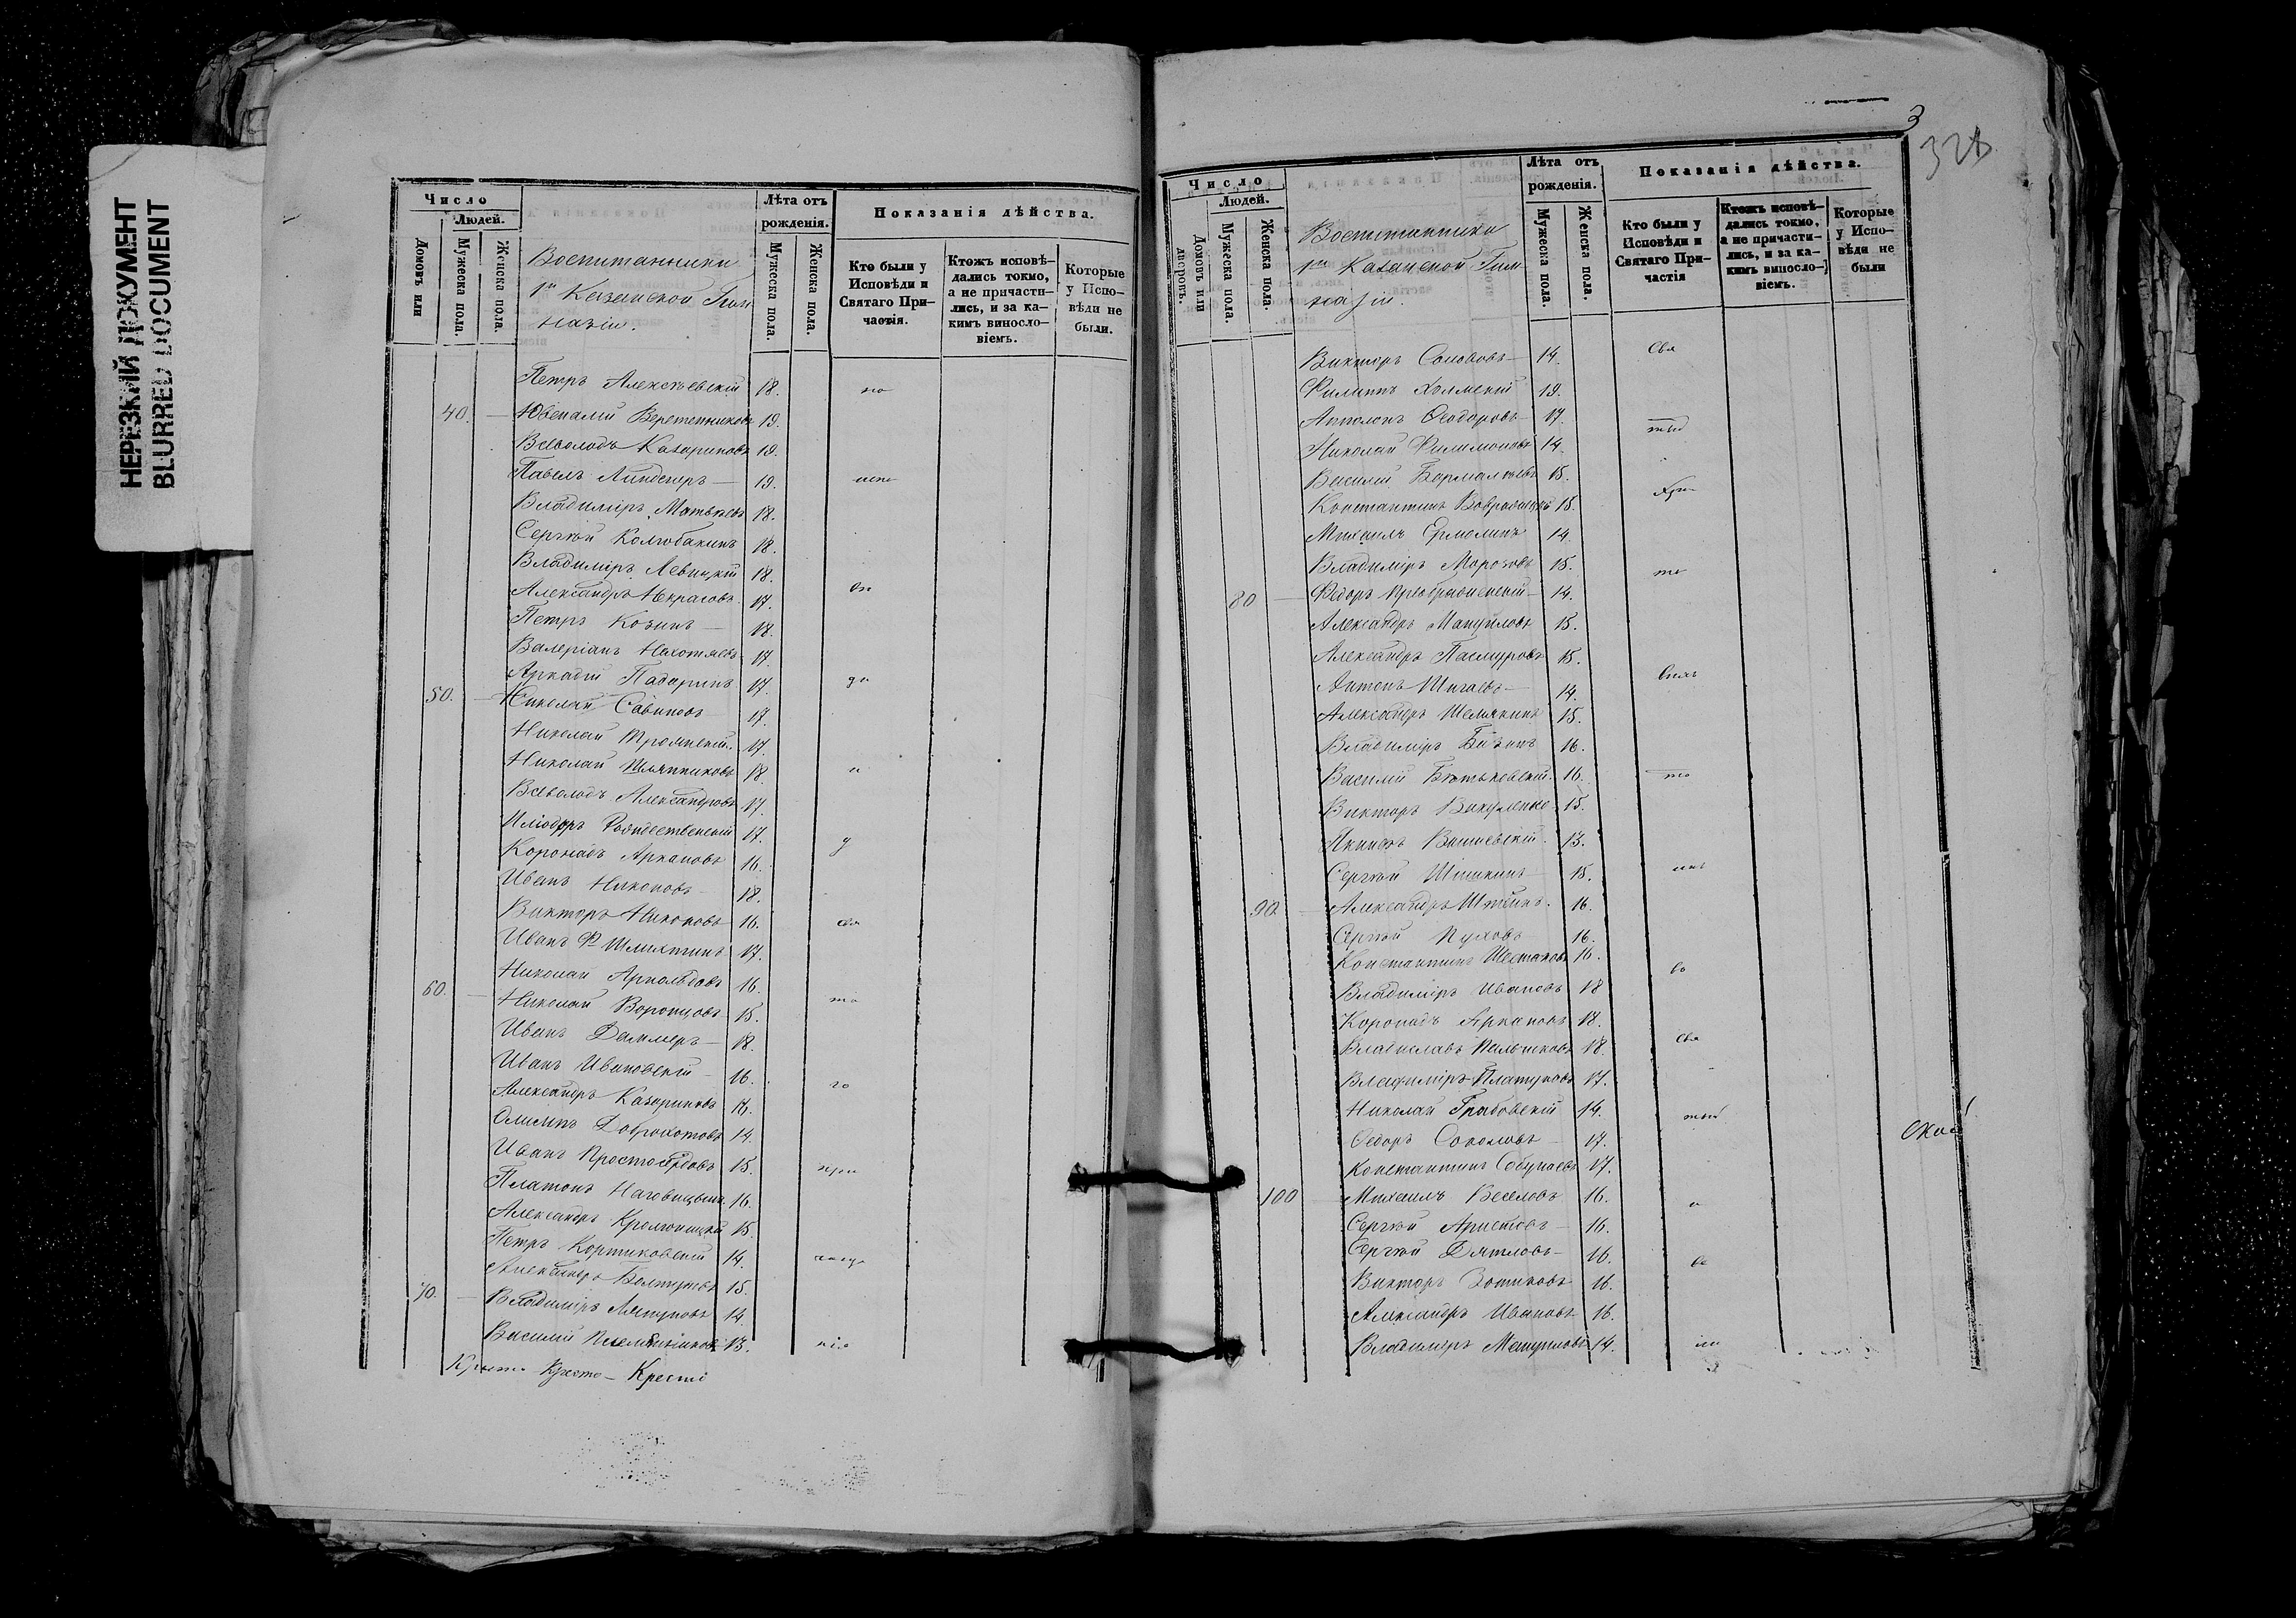 НЕРЕЗКИЙ ДОКУМЕНТ
BLURRED DOCUMENT
Число
Людей.
Домовъ или
Мужеска пола.
Женска пола.
Воспитанники
1й Казанской Гим
назіи.
Лѣта отъ
рожденія.
Мужеска пола.
Женска пола.
Показанія дѣйства.
Кто были у
Исповѣди и
Святаго При-
частія.
Ктожъ исповѣ-
дались токмо,
а не причасти-
лись, и за ка-
кимъ винosло-
віемъ.
Которые
у Испо-
вѣди не
были.
Петръ Алексѣевскій 18. по
40. Ювеналій Веретенниковъ 19.
Всеволодъ Казариновъ 19.
Павелъ Линдегеръ 19. испо
Владиміръ Матвѣевъ 18.
Сергѣй Колюбакинъ 18.
Владиміръ Левицкій 18.
Александръ Некрасовъ 17. вѣ
Петръ Козинъ 18.
Валеріанъ Нахотяевъ 17.
Аркадій Падаринъ 17. ди
50. Николай Савиновъ 17.
Николай Троянскій 17.
Николай Шляпниковъ 18 и
Всеволодъ Александровъ 17.
Иліодоръ Рождественскій 17. у
Коронадъ Аркановъ 16.
Иванъ Никоновъ 18.
Викторъ Никоновъ 16. свя
Иванъ Ф. Шлихтинъ 17.
Николай Арнольдовъ 16. та
60. Николай Воронцовъ 15.
Иванъ Даммеръ 18.
Иванъ Ивановскій 16. го
Александръ Казариновъ 16.
Олимпъ Доброхотовъ 14.
Иванъ Простосердовъ 15. при
Платонъ Наговицынъ 16.
Александръ 15.
Петръ Кортиковскій 14. часр
Александръ 15.
70. Владиміръ Ляпуновъ 14.
Василій 13. нію
Кресто Кресто - Кресті
3
328
Число
Людей.
Домовъ или
дворовъ.
Мужеска пола.
Женска пола.
Воспитанники
1й Казанской Гим
назіи.
Лѣта отъ
рожденія.
Мужеска пола.
Женска пола.
Показанія дѣйства.
Кто были у
Исповѣди и
Святаго При-
частія
Ктожъ исповѣ-
дались токмо,
а не причасти-
лись, и за ка-
кимъ винocло-
віемъ.
Которые
у Испо-
вѣди не
были
Викторъ Солововъ 14. Свя
Филиппъ Холмскій 19.
Апполонъ Ѳеодоровъ 17. тый
Николай Филимоновъ 14.
Василій Бермалѣевъ 15.
Константинъ 15. Хри
Михаилъ Ермолинъ 14.
Владиміръ Морозовъ 15. то
80 Федоръ Преображенскій 14.
Александръ Мануйловъ 15.
Александръ Пасмуровъ 15.
Антонъ Шигаевъ 14.
Александръ Шемякинъ 15.
Владиміръ Бизинъ 16.
Василій Бѣтьковскій 16. то
Викторъ Викуленко 15.
Вишневскій 13.
Сергѣй Шишкинъ 15.
90. Александръ Штейнъ. 16.
Сергѣй Пуховъ 16.
Константинъ Шестаковъ 16. во
Владиміръ Ивановъ 18
Коронадъ Аркановъ 18.
Владиславъ Пельчиковъ 18. Свя
Владиміръ Платуновъ 17.
Николай Грабовскій 14. тый
Ѳедоръ Соколовъ 17.
Константинъ 17.
100 Михаилъ Веселовъ 16. и
Сергѣй Аристовъ 16.
Сергѣй Дятловъ 16. ве
Викторъ Зотиковъ 16.
Александръ Ивановъ 16.
Владиміръ 14.
ской